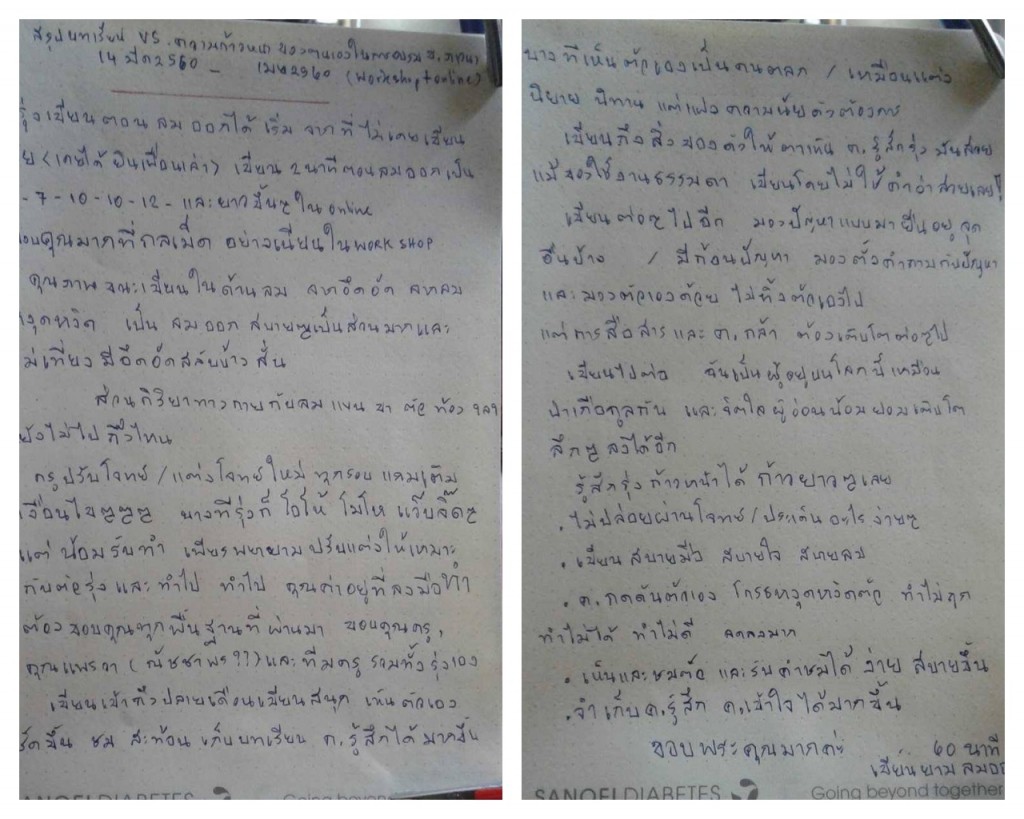 สรุปบทเรียน VS. ความก้าวหน้า ของตนเองในการอบรม ช. ภาวนา
14 มีค 2560 - เมษ 2560 (Workshop + online)
รุ่ง เขียนตอน ลมออกได้ เริ่ม จาก ที่ ไม่เคยเขียน
ย (เคยได้ ยินเพื่อนเล่า) เขียน 2 นาที ตอนลมออก เป็น
- 7 - 10 - 10 - 12 - และยาวขึ้นๆ ใน online
ขอบคุณมากที่ อย่างเนียนใน WORK SHOP
คุณภาพ ขณะเขียนในด้านลม จากอึดอัด จากลม
หงุดหงิด เป็น ลมออก สบายๆเป็นส่วนมากและ
ไม่เที่ยง มีอึดอัดสลับบ้าง สั้น
ส่วนกิริยาทางกายกับลม แขน ขา ตัว ท้อง ฯลฯ
ยังไม่ไปถึงไหน
ครูปรับโจทย์ / แต่งโจทย์ใหม่ ทุกรอบ แถมเติม
เงื่อนไขๆๆๆ บางทีรุ่งก็ โอ้โห้ โมโห แว๊บจี๊ดๆ
แต่ น้อมรับทำ เพียรพยายามปรับแต่งให้เหมาะ
กับตัวรุ่ง และ ทำไป ทำไป คุณค่าอยู่ที่ลงมือทำ
ต้องขอบคุณทุกพื้นฐานที่ผ่านมา ขอบคุณครู,
คุณแพรวา (ณัชชาพีร ??) และทีมครู รวมทั้งรุ่งเอง
เขียนเข้าถึงปลายเดือนเขียนสนุก เห็นตัวเอง
ชัดขึ้น ชม สะท้อน เก็บบทเรียน ค.รู้สึกได้มากขึ้น
บางทีเห็นตัวเองเป็นคนตลก / เหมือนแต่ง
นิยาย นิทาน แต่แฝงความนัยดังต้องการ
เขียนถึงสิ่งของดังให้ตาเห็น ค.รู้สึกรุ่งมันสวย
แม้ของใช้งานธรรมดา เขียนโดยไม่ใช้คำว่าสวยเลย!
เขียนต่อๆไปอีก มองปัญหาแบบมายืนอยู่จุด
อื่นบ้าง / มีก้อนปัญหา มองตั้งคำถามกับปัญหา
และมองตัวเองด้วย ไม่ทิ้งตัวเองไป
แต่การสื่อสาร และ ค.กล้า ต้องเติบโตต่อๆไป
เขียนไปต่อ ฉันเป็นผู้อยู่บนโลกนี้เหมือน
ป่าเกื้อกูลกัน และจิตใจผู้อ่อนน้อมยอมเติบโต
ลึกๆ ลงได้อีก
รู้สึกรุ่ง ก้าวหน้าได้ ก้าวยาวๆเลย
. ไม่ปล่อยผ่านโจทย์ / ประเด็น อะไร ง่ายๆ
. เขียน สบายมือ สบายใจ สบายลม
. ค.กดดันตัวเอง โกรธหงุดหงิดตัว ทำไม่ถูก
ทำไม่ได้ ทำไม่ดี ลดลงมาก
. เห็นและชมตัว และรับคำชมได้ ง่าย สบายขึ้น
. จำเก็บ ค.รู้สึก ค.เข้าใจ ได้มากขึ้น
ขอบพระคุณมากค่ะ 60 นาที
เขียนยาม ลมออ
SANOFI DIABETES Going beyond together